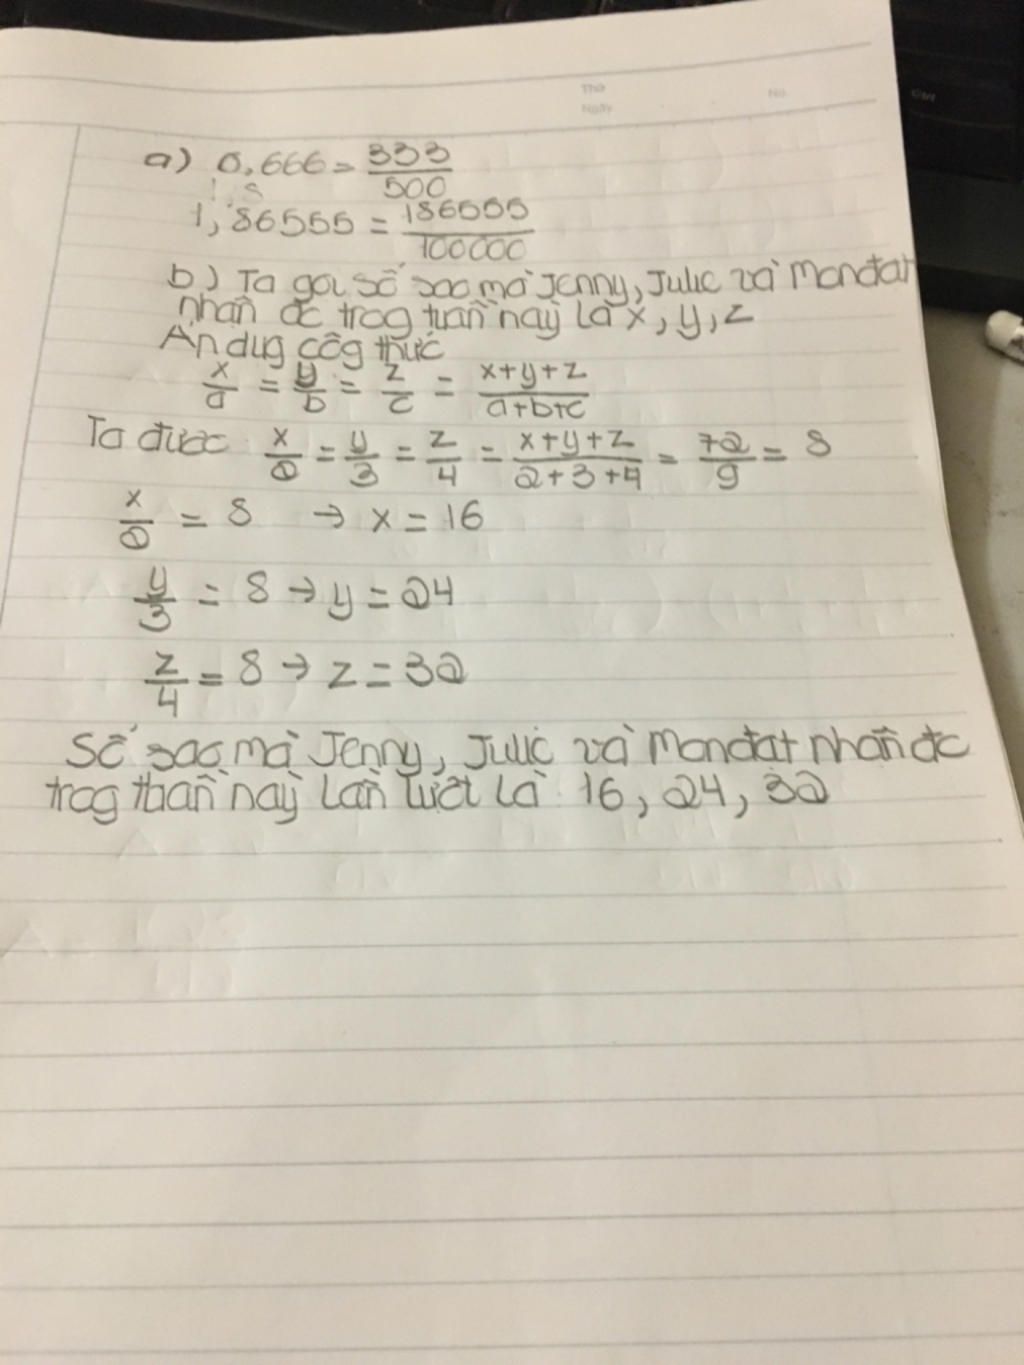 Thứ
No.
Ngày
Ctrl
a) 0,666 = 333/500
1,86555 = 186555/100000
b) Ta gọi số sao mà Jenny, Julie và Mondat
nhận đc trog tuần này là x, y, z
Áp dụg côg thức
x/a = y/b = z/c = x+y+z/a+b+c
Ta được x/2 = y/3 = z/4 = x+y+z/2+3+4 = 72/9 = 8
x/2 = 8 → x = 16
y/3 = 8 → y = 24
z/4 = 8 → z = 32
Số sao mà Jenny, Julie và Mondat nhận đc
trog tuần này lần lượt là 16, 24, 32